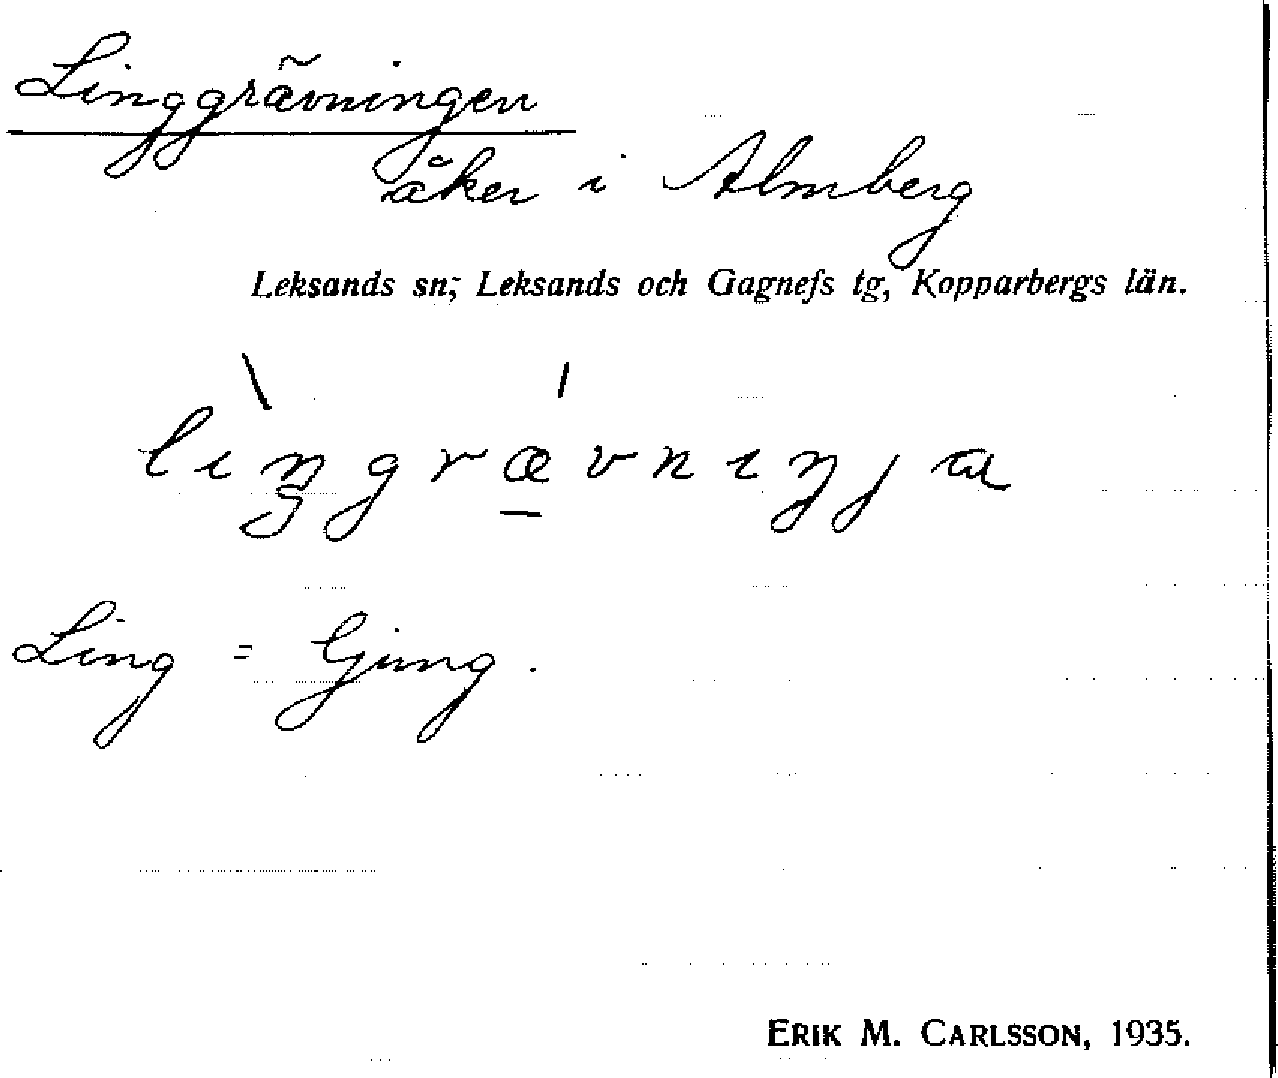 Linggrävningen
åker i Almberg
Leksands sn; Leksands och Gagnefs tg, Kopparbergs län.
li̖ŋgrævnɩŋja
Ling = Ljung.
ERIK M. CARLSSON, 1935.